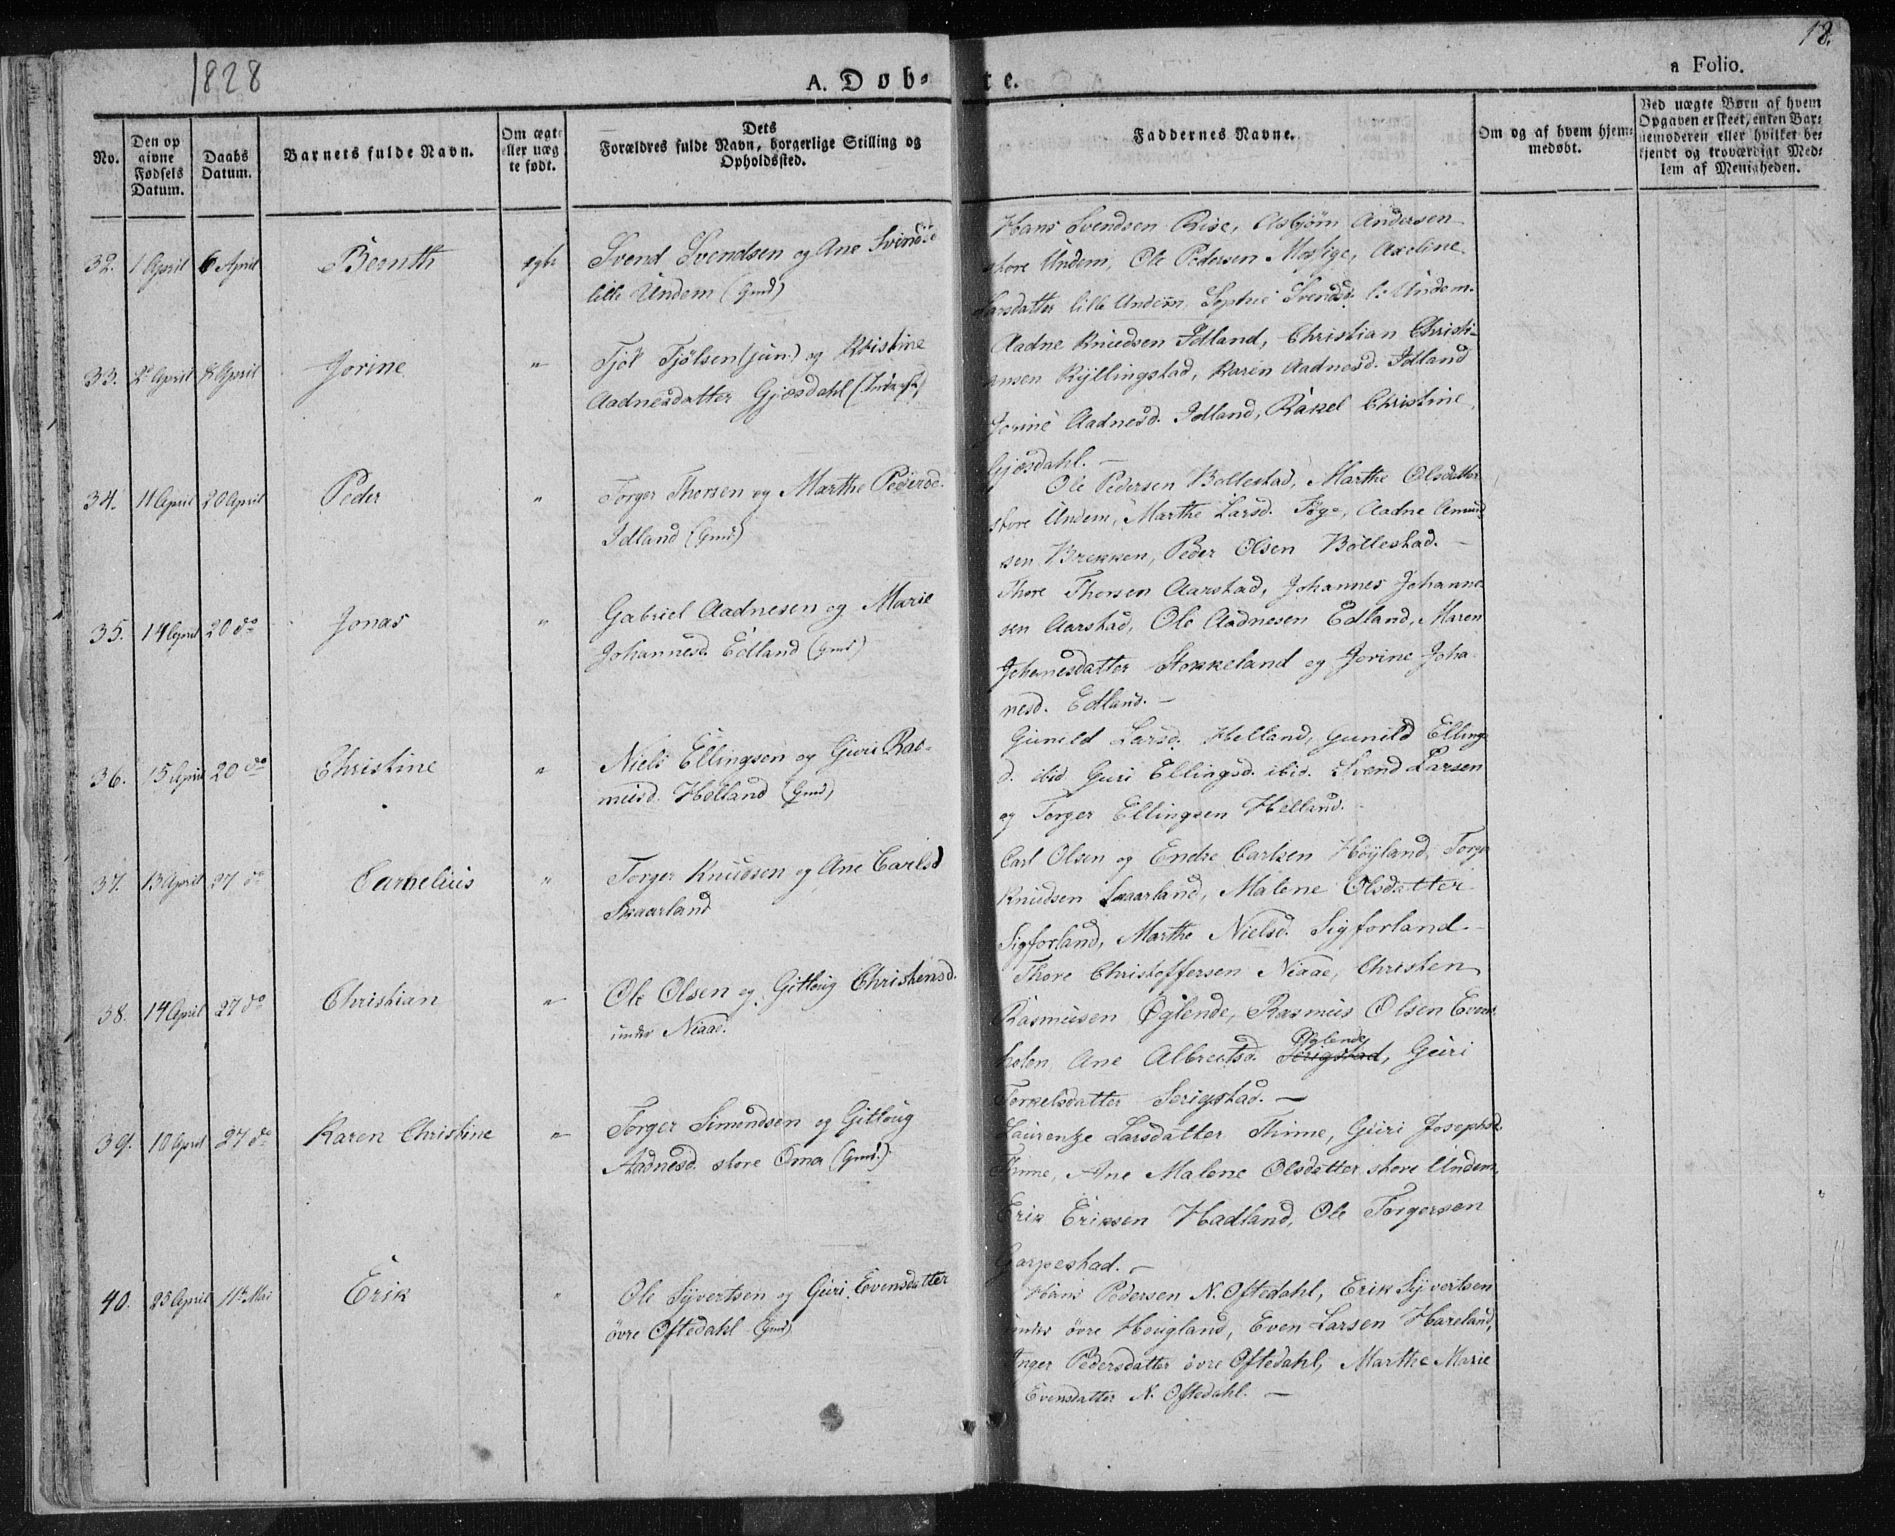 1828
A. Døb-
te.
18.
a Folio.
No.
Den op
givne
Fødsels
Datum.
Daabs
Datum.
Barnets fulde Navn.
Om ægte
eller uæg
te født.
Dets
Forældres fulde Navn, borgerlige Stilling og
Opholdssted.
Faddernes Navne.
Om og af hvem hjem-
medøbt.
Ved uægte Børn af hvem
Opgaven er skeet, enten Bar-
nemoderen eller hvilket be-
kjendt og troværdigt Med-
lem af Menigheden.
32. 1 April 6 April Bernth egte Svend Svendsen og Ane Svinds
lille Undem (Gmd)
Hans Svendsen Rise, Asbjørn Andersen
store Undem, Ole Pedersen Mosige, Axeline
Larsdatter lille Undem, Sophie Svends. l: Undem.
33. 2 April April Jorine " Tjøl Tjølsen (jun:) og Kristine
Aadnesdatter Gjøsdahl
Aadne Knudsen Idland, Christian Christi-
ansen Ryllingstad, Karen Aadnesd. Idland
Jorine Aadnesd. Idland, Rakel Christine
Gjøsdahl. —
34. 11 April 20 April Peder " Torger Thorsen og Marthe Pedersd.
Idland (Gmd)
Ole Pedersen Bollestad, Marthe Olsdatter
store Undem, Marthe Larsd. Tøge, Aadne Amund
sen Brekken, Peder Olsen Bollestad. —
35. 14 April 20 do Jonas " Gabriel Aadnesen og Marie
Johannesd. Edland (Gmd)
Thore Thorsen Aarstad, Johannes Johanne
sen Aarstad, Ole Aadnesen Edland, Maren
Johanesdatter Stokkeland og Jorine Joha-
nesd. Edland. —
36. 15 April 20 do Christine " Niels Ellingsen og Guri Ras-
musd. Helland (Gmd)
Gunild Larsd. Helland, Gunild Ellings
d. ibid. Guri Ellingsd. ibid. Svend Larsen
og Torger Ellingsen Helland.
37. 13 April 27 do Carnelius " Torger Knudsen og Ane Carlsd
Skaarland
Carl Olsen og Endre Carlsen Høyland, Torger
Knudsen Skaarland, Malene Olsdatter
Sigforland, Marthe Nielsd. Sigforland.
38. 14 April 27 do Christian " Ole Olsen og Gitloug Christensd.
under Niaae.
Thore Christoffersen Niaae, Christen
Rasmusen Øglende, Rasmus Olsen Even
holen, Ane Albreetsd. Serigstad, Guri
Øglende
Torkelsdatter Serigstad. —
39. 10 April 27 do Karen Christine " Torger Simondsen og Gitloug
Aadnesd. store Oma (Gmd.)
Laurentze Larsdatter Thime, Guri Josephsd.
Thime, Ane Malene Olsdatter store Undem,
Erik Eriksen Hadland, Ole Torgersen
Garpestad. —
40. 23 April 11te Mai Erik " Ole Syvertsen og Guri Evensdatter
øvre Oftedahl (Gmd)
Hans Pedersen N. Oftedahl, Erik Syvertsen
under øvre Hougland, Even Larsen Hareland,
Inger Pedersdatter øvre Oftedahl, Marthe Marie
Evensdatter N. Oftedahl. —